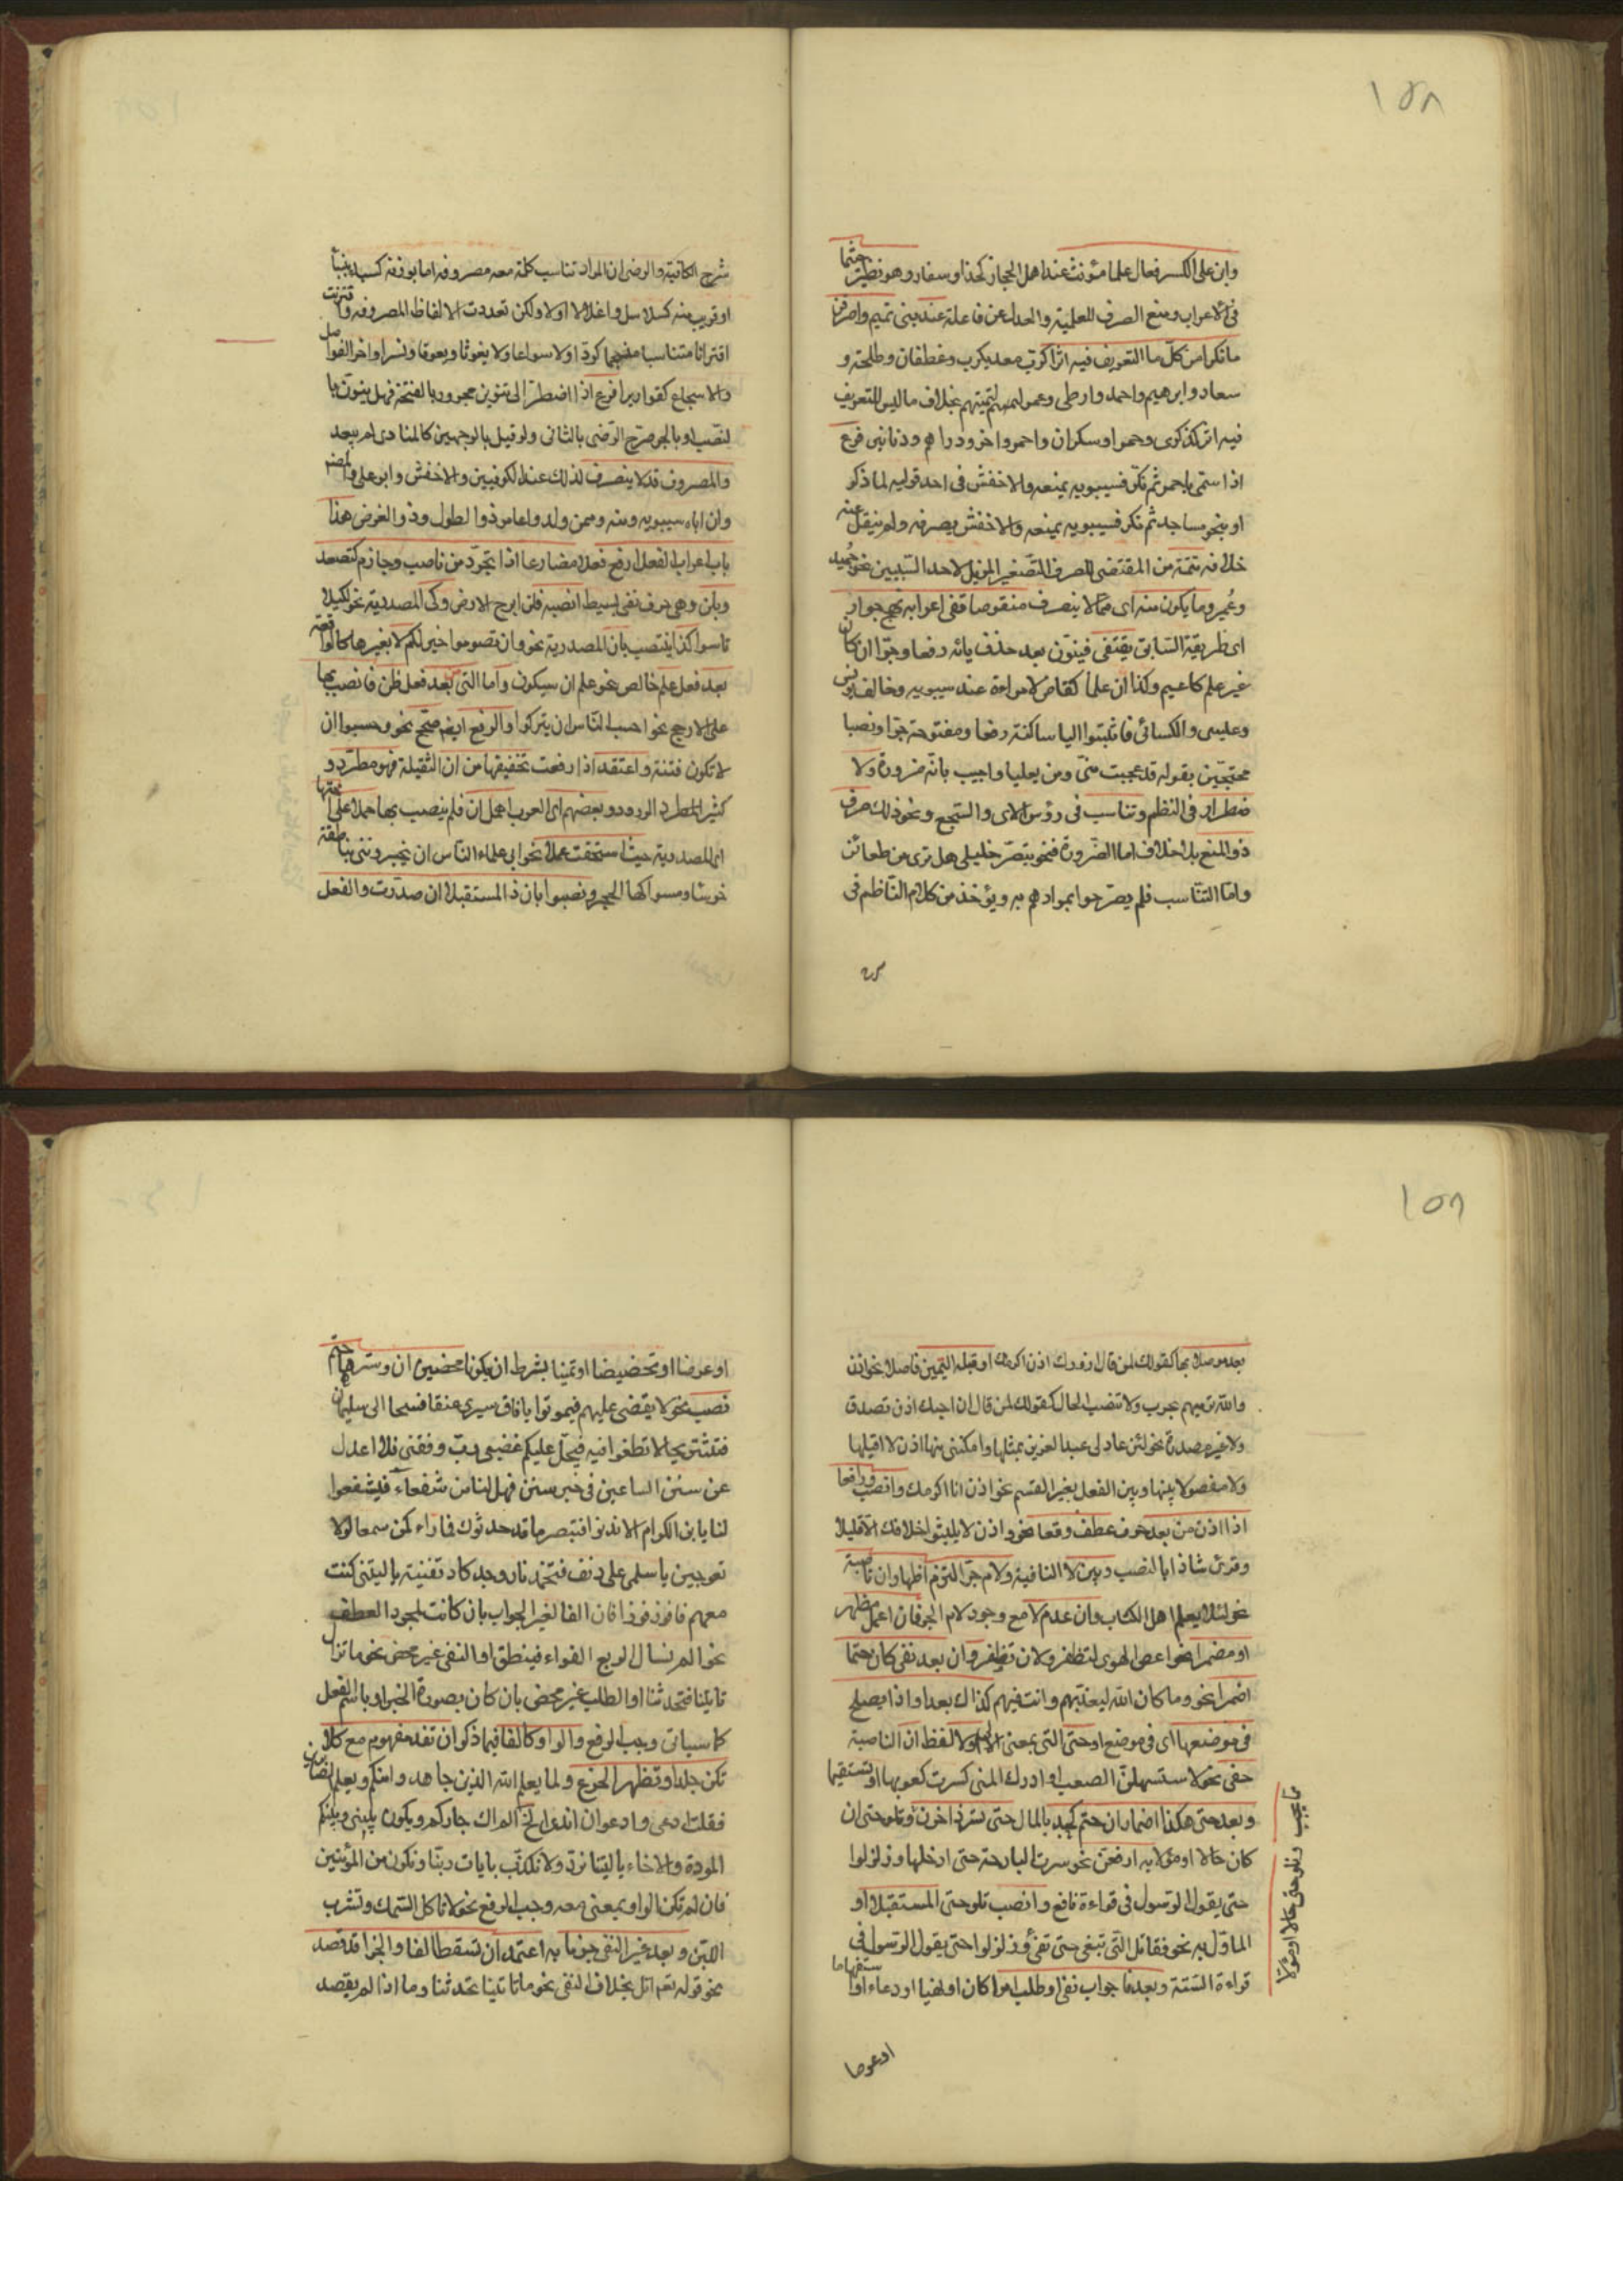 ١٥٨
وابن على الكسر فعال علما مؤنثا عند اهل الحجاز كحذام وسفار وهو نظير جشما
فى الاعراب ومنع الصرف للعلمية والعدل عن فاعلة عند بنى تميم واصرفن
ما نكرا من كل ما التعريف فيه اثرا كرب معديكرب وغطفان وطلحة و
سعاد وابراهيم واحمد وارطى وعمر لقيتهم بخلاف ما ليس للتعريف
فيه اثر كذكرى وحمراء وسكران واحمر واخر ودراهم ودنانير فرع
اذا سمى باحمر ثم نكر فسيبويه يمنعه والاخفش فى احد قوليه لما ذكر
او بنحو مساجد ثم نكر فسيبويه يمنعه والاخفش يصرفه ولم ينقل عنه
خلافه تتمة من المقتضى للصرف التصغير المزيل لاحد السببين نحو حميد
وعمير وما يكون منه اى مما لا ينصرف منقوصا ففى اعرابه نهج جوار
اى طريقة السابق يقتفى فينون بعد حذف يائه رفعا وجرا ان كان
غير علم كاعيم وكذا ان علما كقاض لامراءة عند سيبويه وخالف يونس
وعيسى والكسائى فاثبتوا اليا ساكنة رفعا ومفتوحة جرا ونصبا
محتجين بقوله قد عجبت منى ومن يعيليا واجيب بانه ضرورة ولا
ضطرار فى النظم وتناسب فى رؤس الاى والسجع ونحو ذلك صرف
ذو المنع بلا خلاف اما الضرورة فنحو تبصر خليلى هل ترى من ظعائن
واما التناسب فلم يصرحوا بمرادهم به ويؤخذ من كلام الناظم فى
شرح الكافية والرضى ان المراد تناسب كلمة معه مصروفة اما بوزنه كسبأ بنبأ
او قريب منه كسلاسل واغلالا اولا ولكن تعددت الالفاظ المصروفة واقترنت
اقترانا متناسبا منسجما كودا ولا سواعا ولا يغوثا ويعوقا ونسرا واخر الفواصل
والاسجاع كقواريرا فرع اذا اضطر الى تنوين مجرور بالفتحة فهل ينون با
لنصب او بالجر صرح الرضى بالثانى ولو قيل بالوجهين كالمنادى لم يبعد
والمصروف قد لا ينصرف لذلك عند الكوفيين والاخفش وابى على والمصنف
وان اباه سيبويه ومنه وممن ولدوا عامر ذو الطول وذو العرض هذا
باب اعراب الفعل ارفع فعلا مضارعا اذا تجرد من ناصب وجازم كتصعد
وبلن وهى حرف نفى بسيط انصبه فلن ابرح الارض وكى المصدرية نحو لكيلا
تاسوا كذا ينتصب بان المصدرية نحو وان تصوموا خير لكم لا بغيرها كالواقعة
بعد فعل علم خالص نحو علم ان سيكون واما التى من بعد فعل ظن فانصب بها
على الارجح نحو احسب الناس ان يتركوا والرفع ايضم صحح نحو وحسبوا ان
لا تكون فتنة واعتقد اذا رفعت تخفيفها من ان الثقيلة فهو مطرد و
كثير المطرد الورود وبعضهم اى العرب اهمل ان فلم ينصب بها حملا على ما اختها
اى المصدرية حيث استحقت عملا نحو ابى علماء الناس ان يخبروننى بناطقة
خرساء ومسواكها الحجر ونصبوا باذن ذ المستقبلا ان صدرت والفعل
١٥٩
بعد موصلا بها كقولك لمن قال ازورك اذن اكرمك او قبله اليمين فاصلا نحو اذن
والله نرميهم بحرب ولا تنصب الحال كقولك لمن قال ان احبك اذن تصدق
ولا غير مصدرة نحو لئن عاد لى عبد العزيز بمثلها وامكننى منها اذن لا اقيلها
ولا مفصولا بينها وبين الفعل بغير القسم نحو اذن انا اكرمك وانصب وارفعا
اذا اذن من بعد حرف عطف وقعا نحو واذن لا يلبثوا خلافك الا قليلا
وقرئ شاذا بالنصب وبين لا النافية ولام جر التزم اظهار ان ناصبة
نحو لئلا يعلم اهل الكتاب وان عدم لا مع وجود لام الجر فان اعمل مظهر
او مضمرا نحو اعص الهوى لتظفر ولان تظفر وان بعد نفى كان حتما
اضمرا نحو وما كان الله ليعذبهم وانت فيهم كذاك بعد او اذا يصلح
فى موضعها اى فى موضع او حتى التى بمعنى الى او الا لفظ ان الناصبة
خفى نحو لاستسهلن الصعب او ادرك المنى كسرت كعوبها او تستقيما
وبعد حتى هكذا اضمار ان حتم كجد بالمال حتى تسر ذا حزن وتلو حتى ان
كان حالا او مؤلا به ارفعن نحو سرت البارحة حتى ادخلها وزلزلوا
حتى يقول الرسول فى قراءة نافع وانصب تلو حتى المستقبلا او
الماول به نحو فقاتلوا التى تبغى حتى تفئ وزلزلوا حتى يقول الرسول فى
قراءة الستة وبعد فا جواب نفى او طلب امرا كان او نهيا او دعاء او استفهاما
او عرضا
وتلو حتى حالا او مؤلا
او عرضا او تحضيضا او تمنيا بشرط ان يكونا محضين ان وسترها حتم
نصب نحو لا يقضى عليهم فيموتوا يا ناق سيرى عنقا فسيحا الى سليمان
فنستريحا لا تطغوا فيه فيحل عليكم غضبى رب وفقنى فلا اعدل
عن سنن الساعين فى خير سنن فهل لنا من شفعاء فيشفعوا
لنا يا بن الكرام الا تدنوا فتبصر ما قد حدثوك فما راء كمن سمعا لولا
تعوجين يا سلمى على دنف فتخمد نار وجد كاد تفنيه يا ليتنى كنت
معهم فافوز فوزا فان الفا لغير الجواب بان كانت لمجرد العطف
نحو الم تسال الربع القواء فينطق او النفى غير محض نحو ما تزال
تاتينا فتحدثنا او الطلب غير محض بان كان بصورة الخبر او باسم الفعل
كما سياتى وجب الرفع والواو كالفا فيما ذكر ان تفد مفهوم مع كلا
تكن جلدا وتظهر الجزع ولما يعلم الله الذين جاهدوا منكم ويعلم الصابرين
فقلت ادعى وادعو ان اندى الخ الم اك جاركم ويكون بينى وبينكم
المودة والاخاء يا ليتنا نرد ولا نكذب بايات ربنا ونكون من المؤمنين
فان لم تكن الواو بمعنى مع وجب الرفع نحو لا تاكل السمك وتشرب
اللبن وبعد غير النفى جزما به اعتمد ان تسقط الفا والجزا قد قصد
نحو قوله تعالى اتل بخلاف النفى نحو ما تاتينا تحدثنا وما اذا لم يقصد